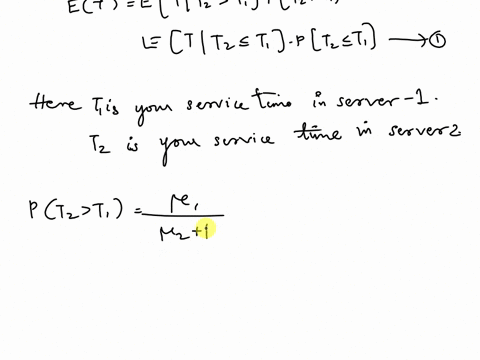 E(T) = E[T | T₂ > T₁]
E[T | T₂ ≤ T₁] · P[T₂ ≤ T₁] ⟶ ①
Here T₁ is your service time in server-1.
T₂ is your service time in server 2
P(T₂ > T₁) = μ₁ / μ₂ +